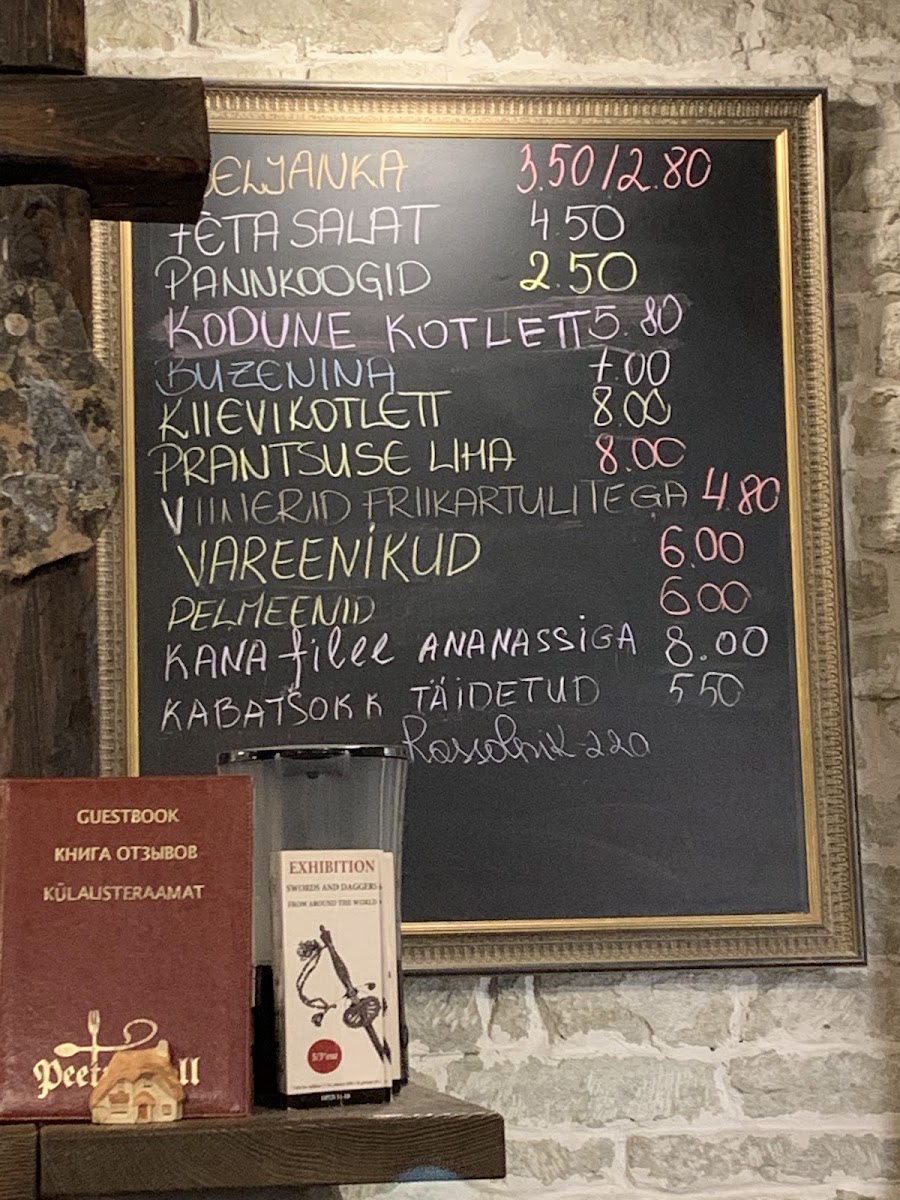 ELJANKA 3.50/2.80
FETA SALAT 4.50
PANNKOOGID 2.50
KODUNE KOTLETT 5.80
BUZENINA 7.00
KIIEVIKOTLETT 8.00
PRANTSUSE LIHA 8.00
VIINERID FRIIKARTULITEGA 4.80
VAREENIKUD 6.00
PELMEENID 6.00
KANA filee ANANASSIGA 8.00
KABATŠOKK TÄIDETUD 5.50
Rossolnik-2.20
GUESTBOOK
КНИГА ОТЗЫВОВ
KÜLALISTERAAMAT
EXHIBITION
SWORDS AND DAGGERS
FROM AROUND THE WORLD